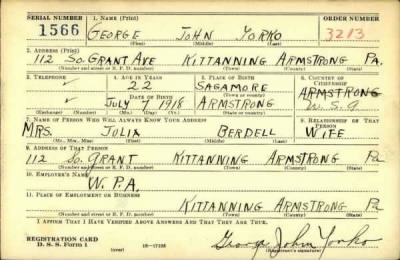 SERIAL NUMBER 1. NAME (Print) ORDER NUMBER
1566 GEORGE JOHN YORKO 3213
(First) (Middle) (Last)
2. ADDRESS (Print)
112 SO. GRANT AVE KITTANNING ARMSTRONG PA.
(Number and street or R. F. D. number) (Town) (County) (State)
3. TELEPHONE 4. AGE IN YEARS 5. PLACE OF BIRTH 6. COUNTRY OF CITIZENSHIP
22 SAGAMORE ARMSTRONG
DATE OF BIRTH (Town or county)
JULY 7 1918 ARMSTRONG U.S.A
(Exchange) (Number) (Mo.) (Day) (Yr.) (State or country)
7. NAME OF PERSON WHO WILL ALWAYS KNOW YOUR ADDRESS 8. RELATIONSHIP OF THAT PERSON
MRS. JULIA BERDELL WIFE
(Mr., Mrs., Miss) (First) (Middle) (Last)
9. ADDRESS OF THAT PERSON
112 SO. GRANT KITTANNING ARMSTRONG Pa
(Number and street or R. F. D. number) (Town) (County) (State)
10. EMPLOYER'S NAME
W.P.A.
11. PLACE OF EMPLOYMENT OR BUSINESS
KITTANNING ARMSTRONG Pa
(Number and street or R. F. D. number) (Town) (County) (State)
I AFFIRM THAT I HAVE VERIFIED ABOVE ANSWERS AND THAT THEY ARE TRUE.
REGISTRATION CARD
D. S. S. Form 1 (over) 16—17105 George John Yorko